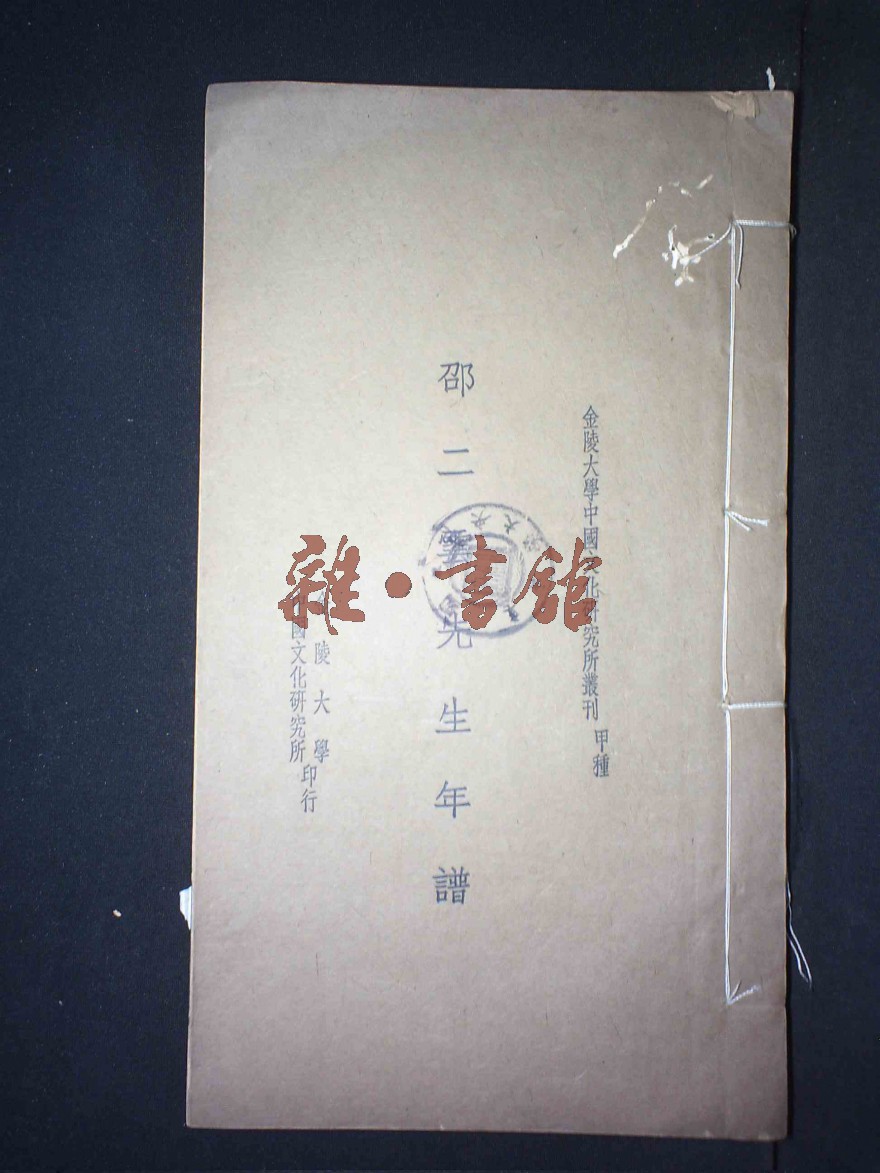 金陵大學中國文化研究所叢刊 甲種
邵二雲先生年譜
陵大學
國文化研究所
印行
雜·書館